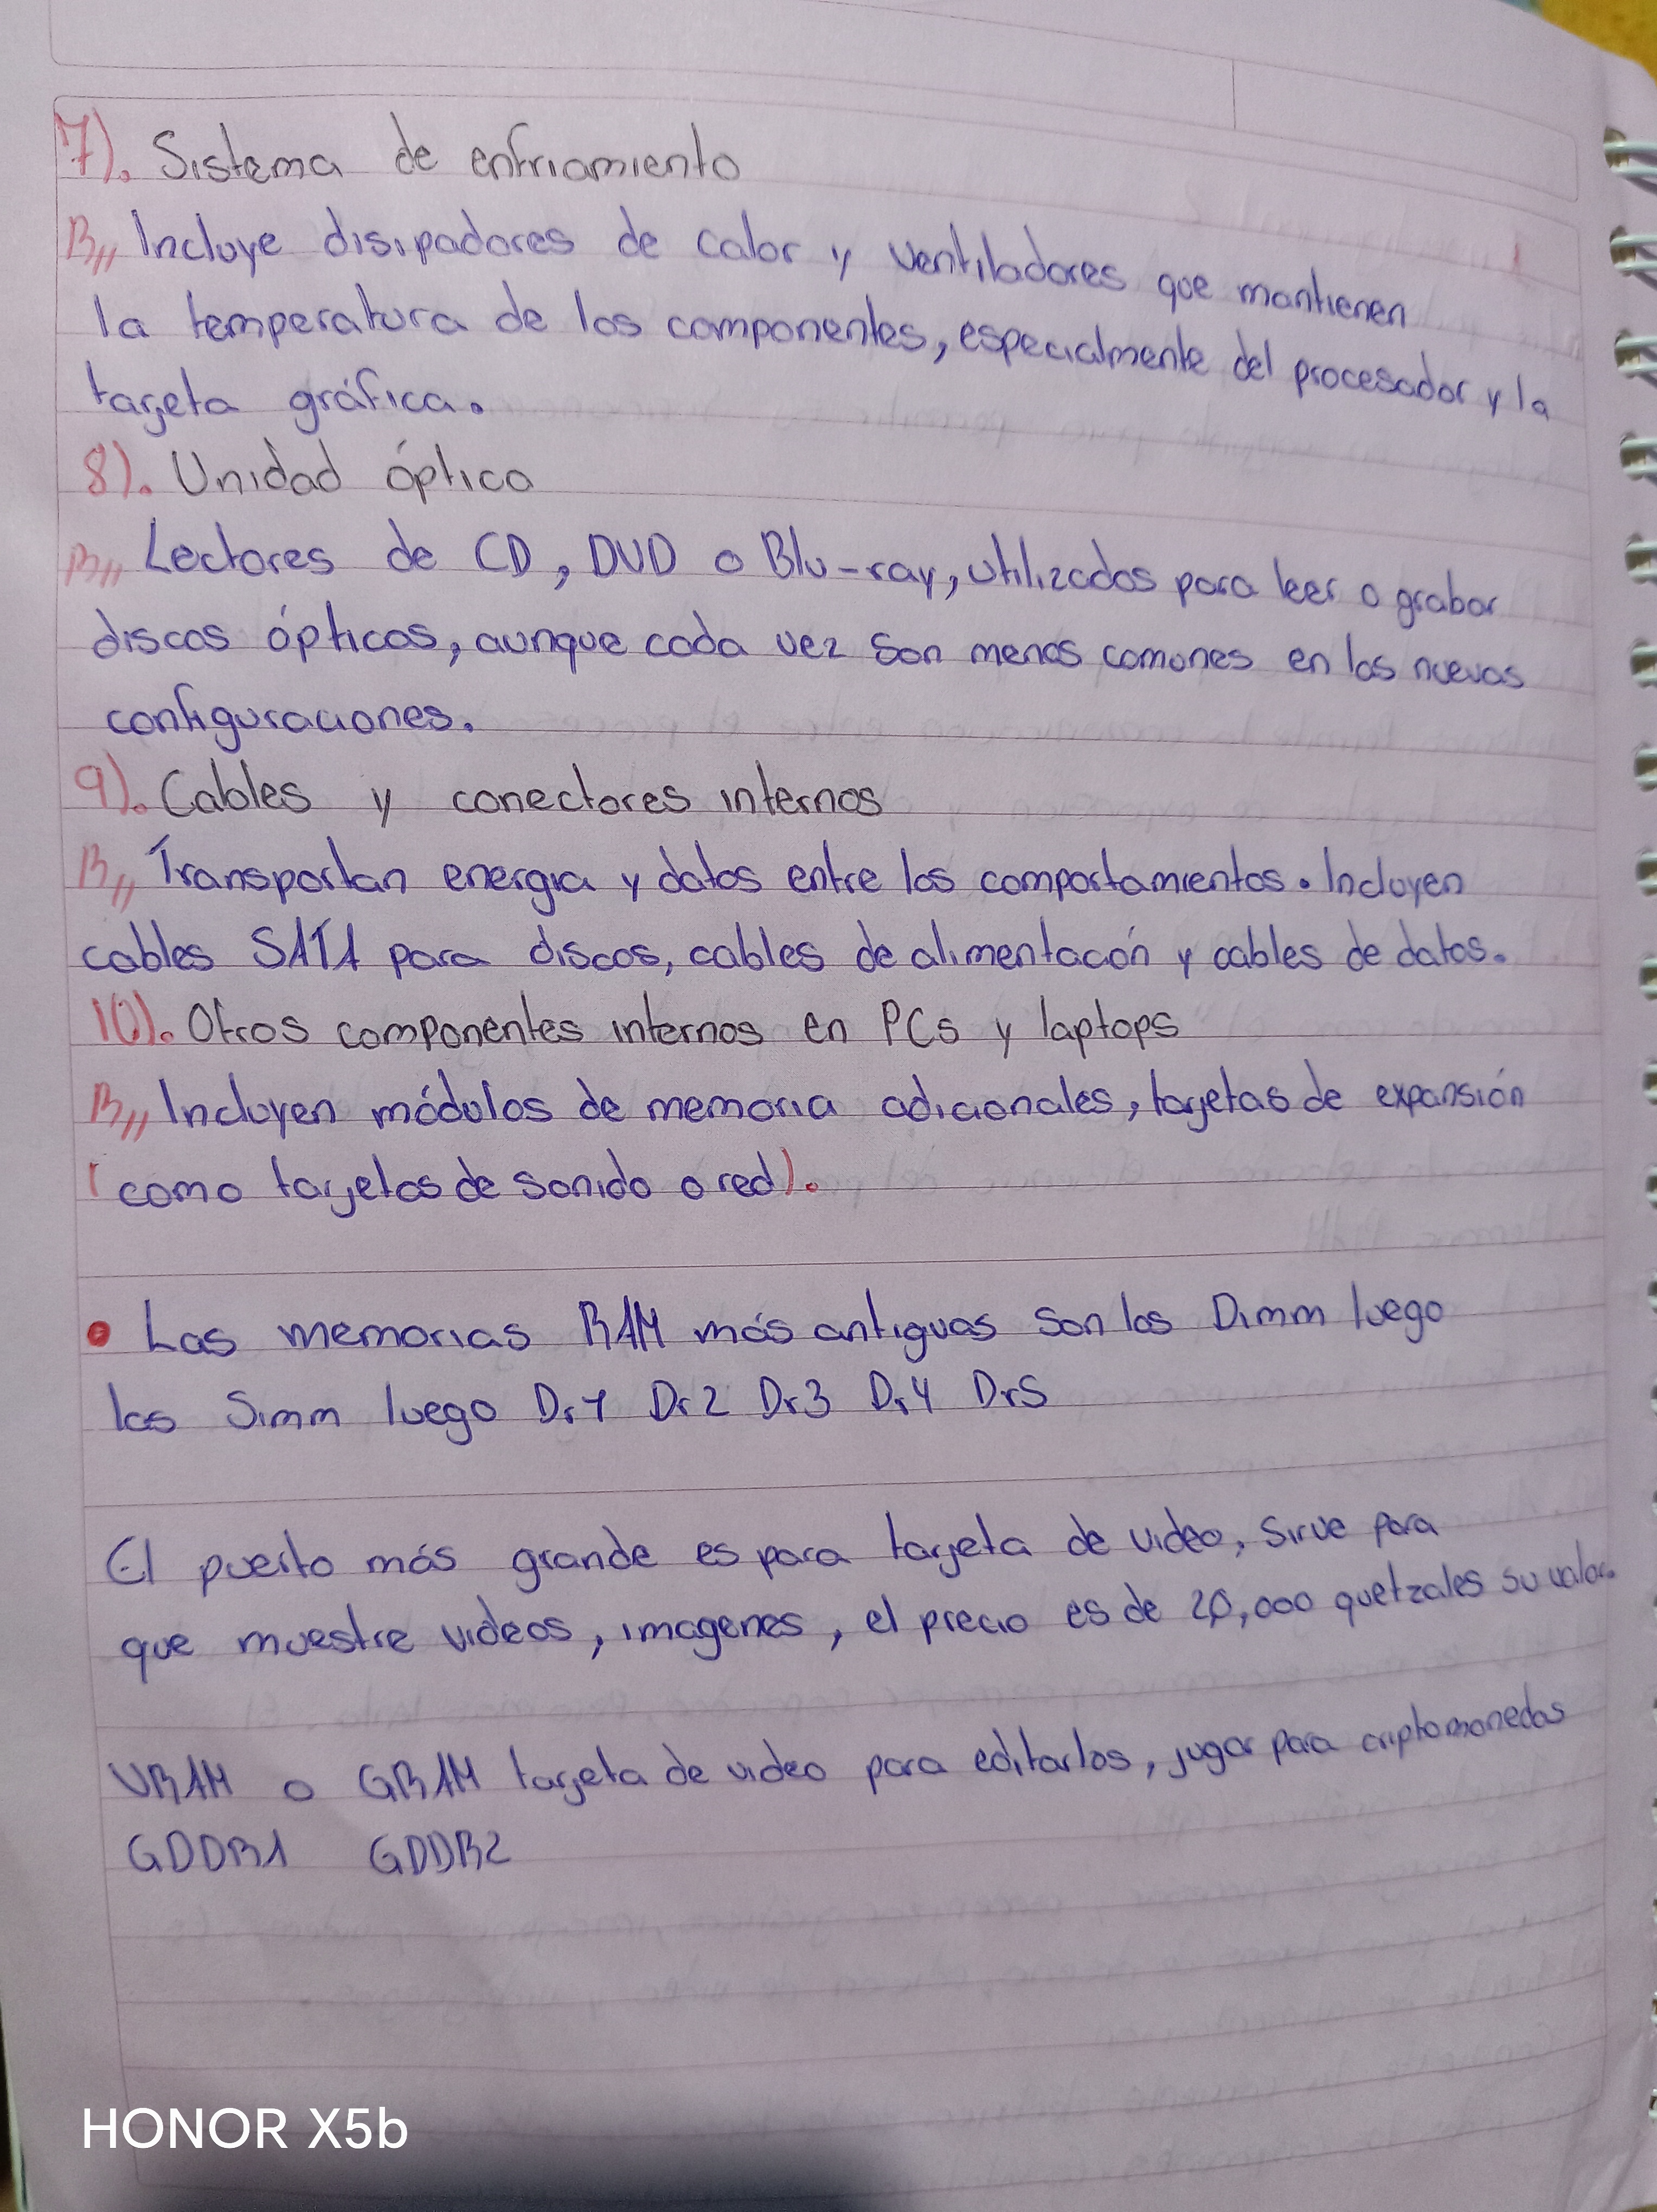 7). Sistema de enfriamiento
R// Incluye disipadores de calor y ventiladores que mantienen
la temperatura de los componentes, especialmente del procesador y la
tarjeta gráfica.
8). Unidad óptica
R// Lectores de CD, DVD o Blu-ray, utilizados para leer o grabar
discos ópticos, aunque cada vez son menos comunes en las nuevas
configuraciones.
9). Cables y conectores internos
R// Transportan energia y datos entre los comportamientos. Incluyen
cables SATA para discos, cables de alimentación y cables de datos.
10). Otros componentes internos en PCs y laptops
R// Incluyen módulos de memoria adicionales, tarjetas de expansión
(como tarjetas de sonido o red).
• Las memorias RAM más antiguas son las Dimm luego
las Simm luego Dr1 Dr2 Dr3 Dr4 Dr5
El puerto más grande es para tarjeta de video, sirve para
que muestre videos, imagenes, el precio es de 20,000 quetzales su valor.
VRAM o GRAM tarjeta de video para editarlos, jugar para criptomonedas
GDDR1 GDDR2
HONOR X5b